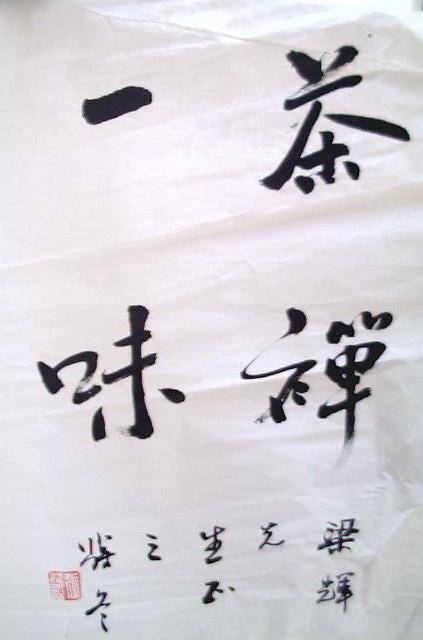 茶禪
一味
梁輝
先
生正
之
冬